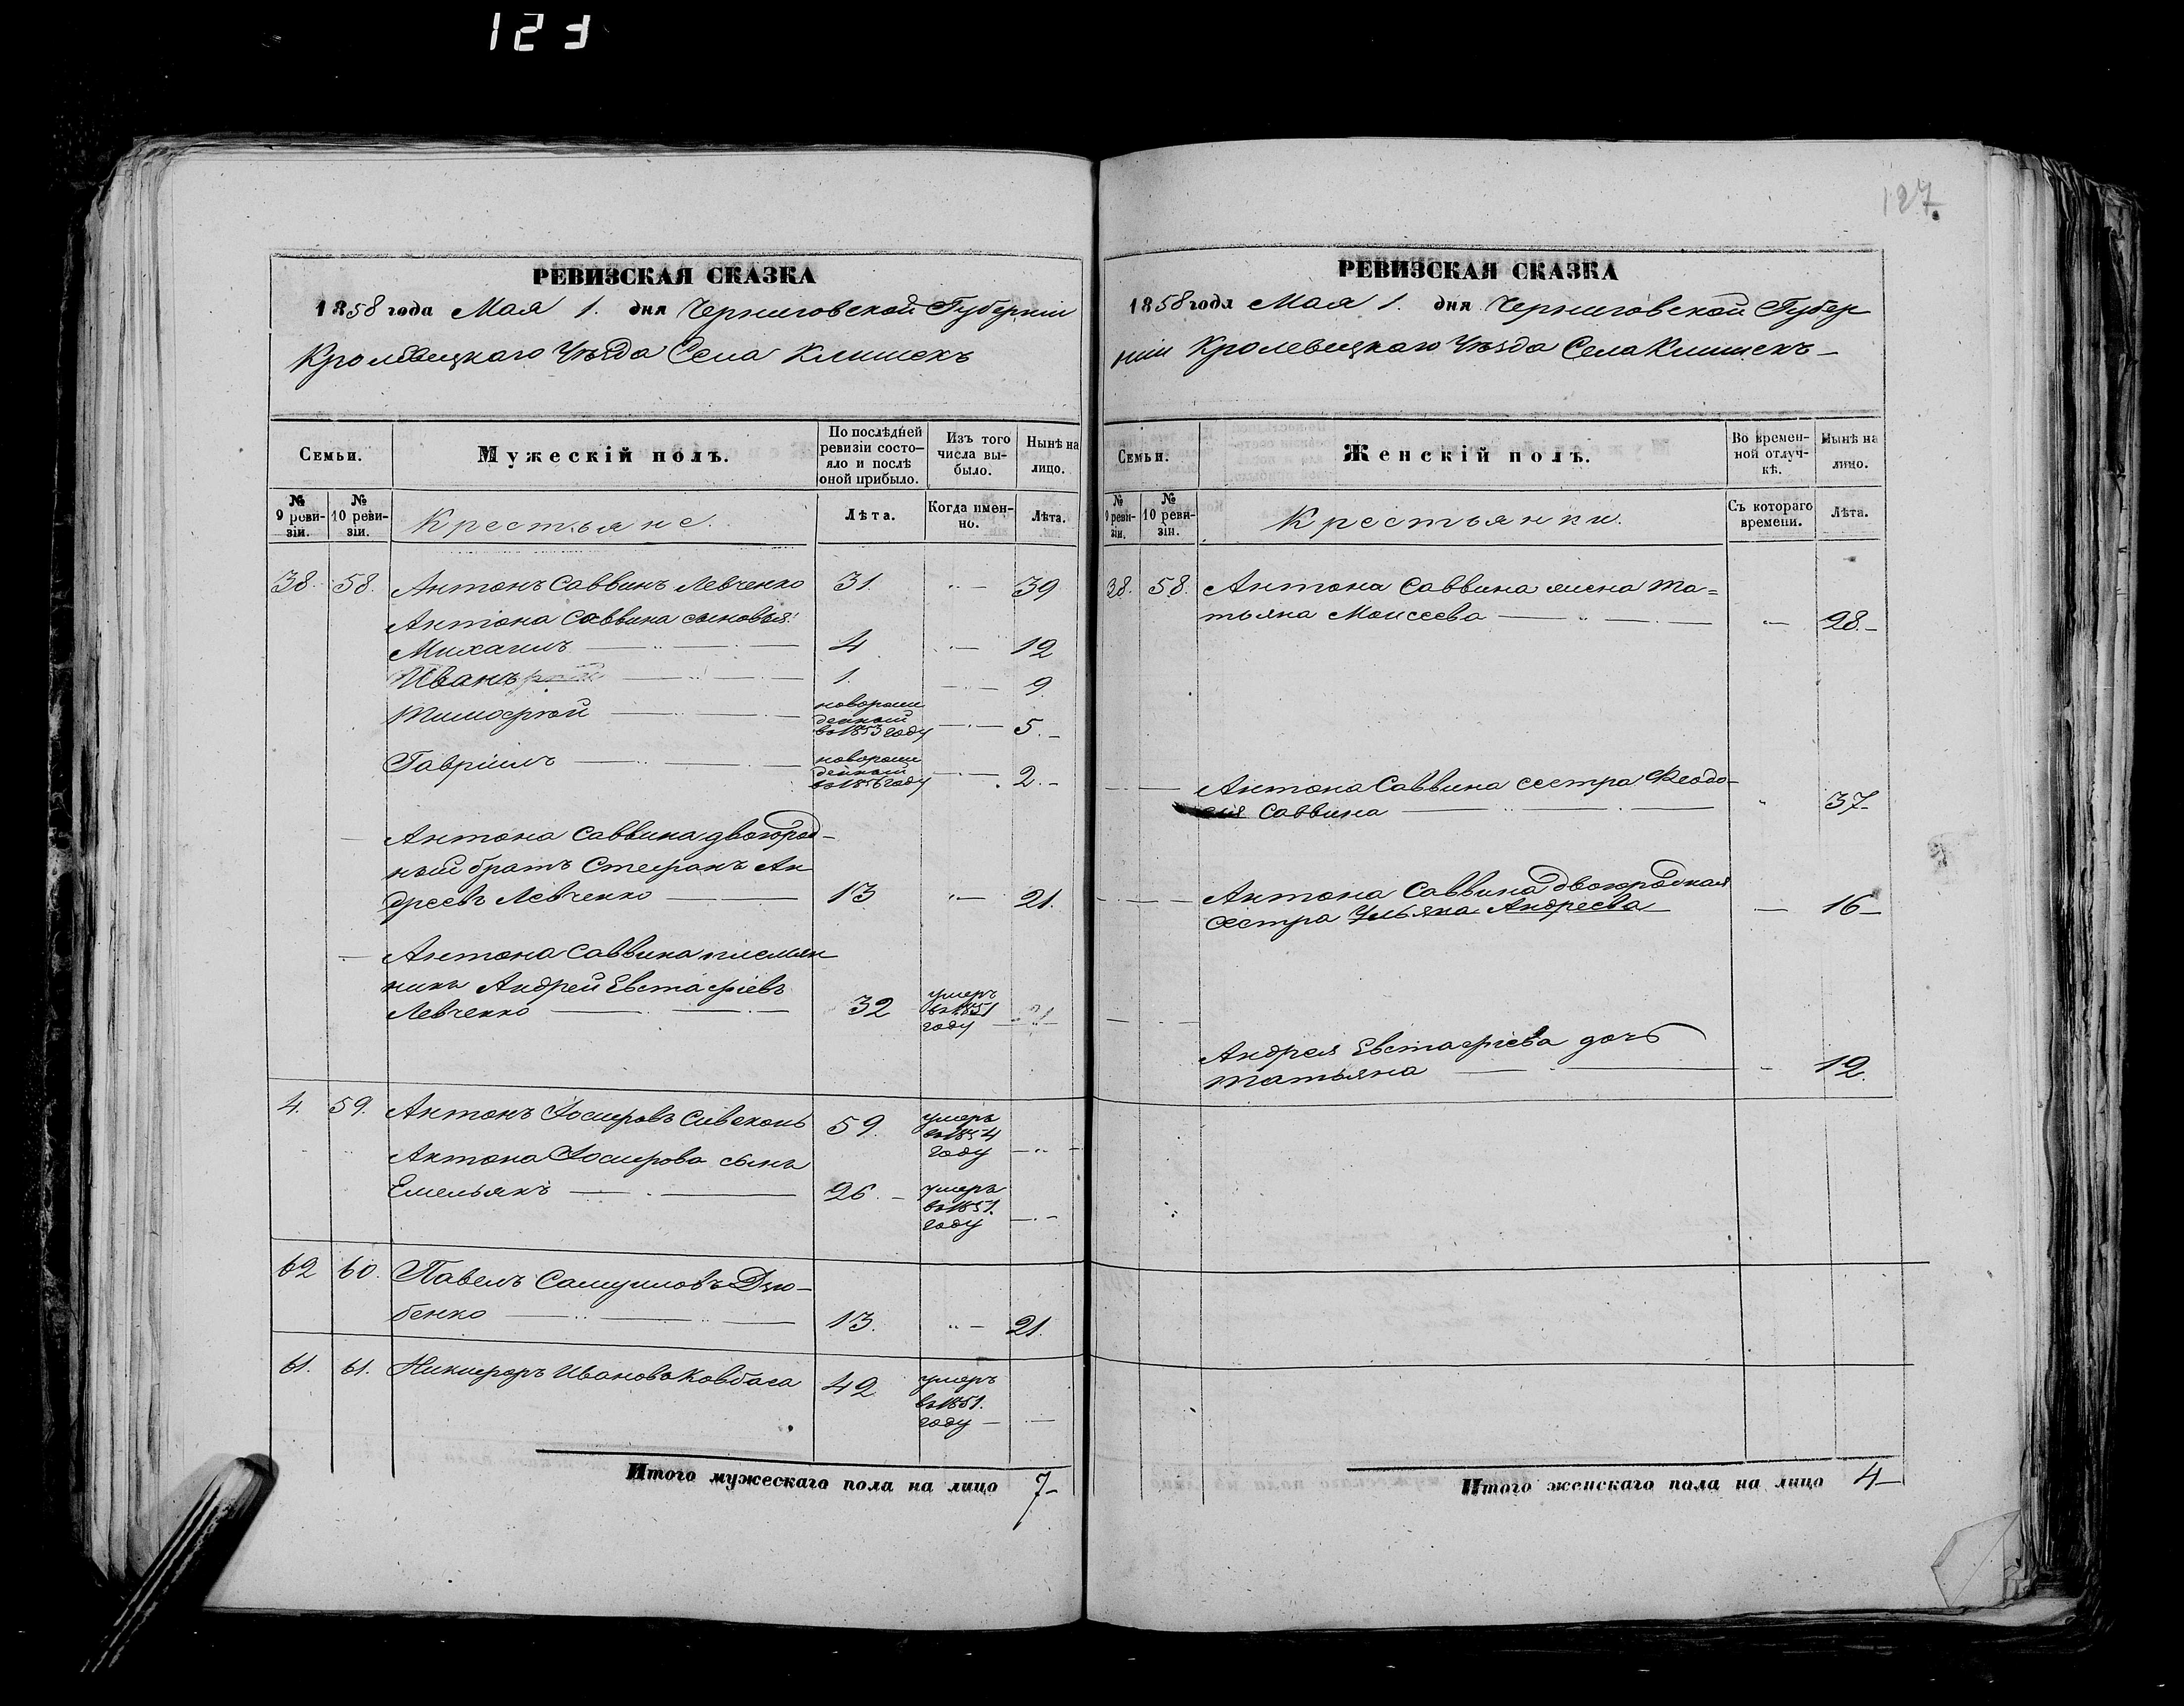 123
127
РЕВИЗСКАЯ СКАЗКА
1858 года Мая 1. дня Черниговской Губерніи
Кролевецкаго Уѣзда Села Клишекъ
Семьи.
Мужескій полъ.
По послѣдней ревизіи состо-яло и послѣ оной прибыло.
Изъ того числа вы-было.
Нынѣ на лицо.
№ 9 реви-зіи.
№ 10 реви-зіи.
Крестьяне.
Лѣта.
Когда имен-но.
Лѣта.
38. 58. Антонъ Саввинъ Левченко 31. 39
Антона Саввина сыновья:
Михаилъ 4 12
Иванъ 1. 9.
Тимофей новорож
денный
въ 1853 году 5.
Гавріилъ новорож
денный
въ 1856 году 2.
Антона Саввина двоюрод-
ный братъ Стефанъ Ан
дреевъ Левченко 13 21.
Антона Саввина племян
никъ Андрей Евстафіевъ
Левченко 32 умеръ
въ 1851
году
4. 59. Антонъ Іосифовъ Сивеконь 59. умеръ
въ 1854
году
Антона Іосифова сынъ
Емельянъ 26. умеръ
въ 1851.
году
62 60. Павелъ Самуиловъ Дзю-
бенко 13. 21.
61. 61. Никифоръ Ивановъ Ковбаса 42 умеръ
въ 1851.
году
Итого мужескаго пола на лицо 7
РЕВИЗСКАЯ СКАЗКА
1858 года Мая 1. дня Черниговской Губер
ніи Кролевецкаго Уѣзда Села Клишекъ
Семьи.
Женскій полъ.
Во времен-ной отлуч-кѣ.
Нынѣ на лицо.
№ 9 реви-зіи.
№ 10 реви-зіи.
Крестьянки.
Съ котораго времени.
Лѣта.
38. 58. Антона Саввина жена Та=
тьяна Моисеева 28.
Антона Саввина сестра Феодо-
сія Саввина 37
Антона Саввина двоюродная
сестра Ульяна Андреева 16
Андрея Евстафіева дочь
Татьяна 12.
Итого женскаго пола на лицо 4